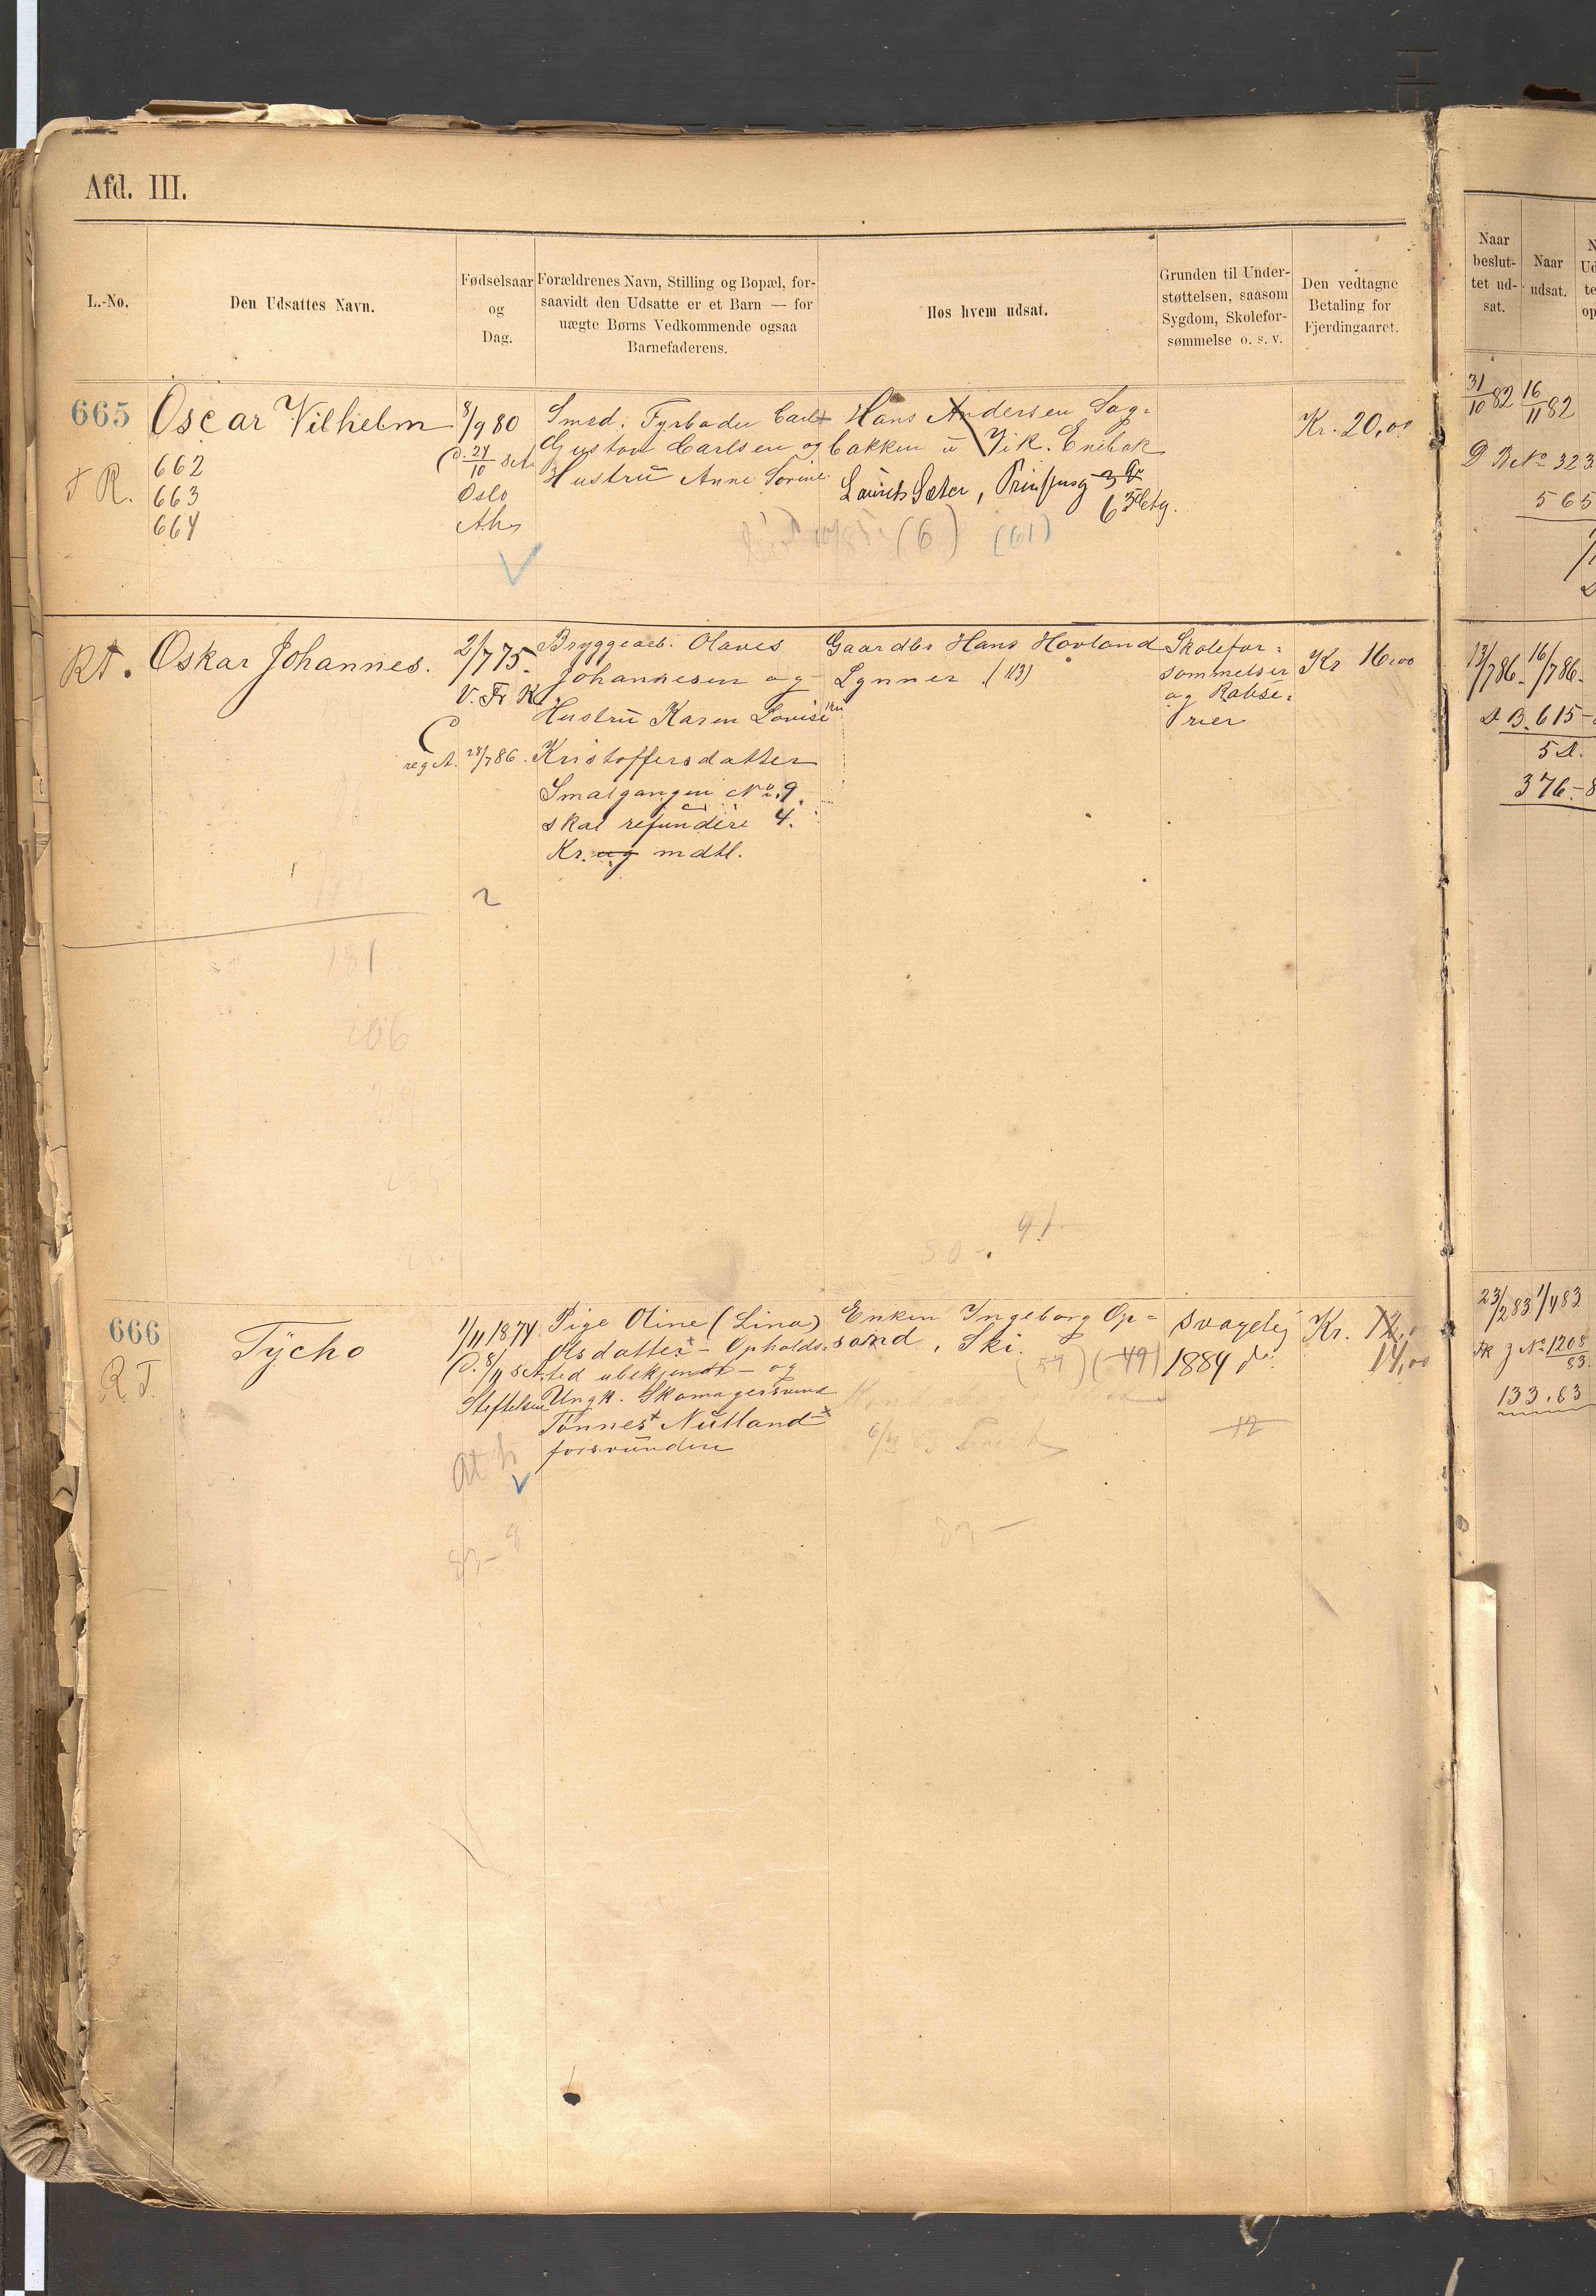 Afd. III.
L.-No.
Den Udsattes Navn.
Fødselsaar
og
Dag.
Forældrenes Navn, Stilling og Bopæl, for-
saavidt den Udsatte er et Barn — for
uægte Børns Vedkommende ogsaa
Barnefaderens.
Hos hvem udsat.
Grunden til Under-
støttelsen, saasom
Sygdom, Skolefor-
sømmelse o. s. v.
Den vedtagne
Betaling for
Fjerdingaaret.
Naar
beslut-
tet ud-
sat.
Naar
udsat.
665
Oscar Vilhelm
662
663
664
8/9 80
Oslo
Smed; Fyrbøder Carl
Gustav Carlsen og
Hustru Anne Sorine
Hans Andersen Sag-
bakken u Vik. Enebak
Laurits Sæter,
(6) (61)
Kr. 20,00
31/10 82
16/11 82
D B No 323
565
RT.
Oskar Johannes.
2/7 75.
V. Fr K.
reg A. 28/7 86.
Bryggearb. Olaves
Johannesen og
Hustru Karen Lovise
Kristoffersdatter
Smalgangen No 9.
skal refundere 4.
Kr. og mdtl.
Gaardbr Hans Hovland
Lynner (113)
Skolefor-
sømmelser
og Rabse-
rier
Kr 16,00
13/7 86.
16/7 86.
D B. 615
5 A.
376.-8
181
206
666
R T.
Tycho
1/11 1874
Pige Oline (Lina)
Olsdatter - Opholds-
sted ubekjendt - og
Ungk. Skomagersvend
Tønnes Nutland
forsvunden
Enken Ingeborg Op-
sand, Ski.
(59) (49)
svagelig
1884 do
12
Kr. 12,
14,00
23/2 83
1/4 83
No 1208/83
133.63
83 - 8
83 -